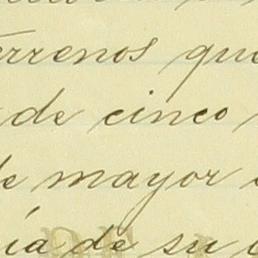 terrenos que
de cinco
de mayor
ía de su